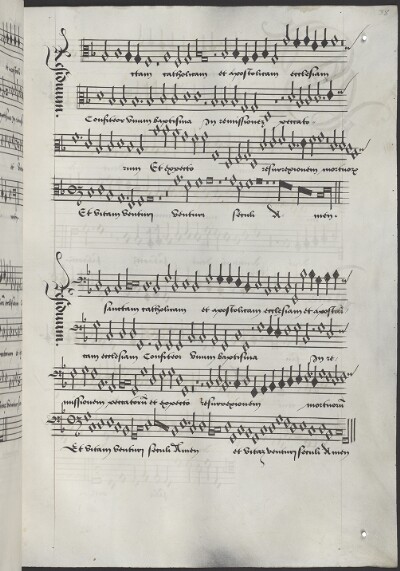 Residuum.
ctam catholicam et apostolicam ecclesiam
Confiteor vnum baptisma In remissionem peccato
rum Et expecto resurrexionem mortuorum
Et vitam venturi venturi seculi A men.
Residuum.
sanctam catholicam et apostolicam ecclesiam et aposto
cam ecclesiam Confiteor vnum baptisma In re
missionem peccatorum et expecto resurrexionem mortuorum
Et vitam venturi seculi Amen et vitam venturi seculi Amen